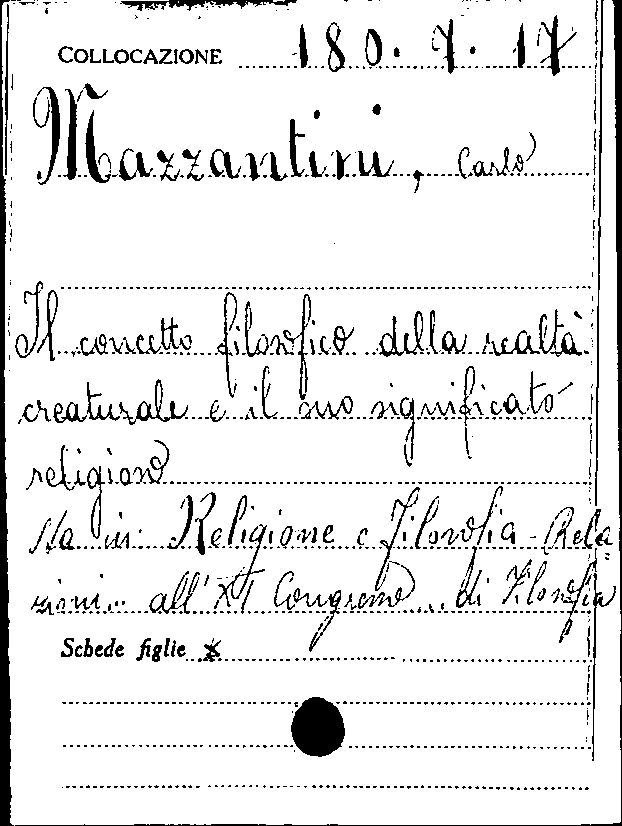 COLLOCAZIONE 180. 7. 17
Mazzantini, Carlo
Il concetto filosofico della realtà
creaturale e il suo significato
religioso
Sta in: Religione e Filosofia - Rela=
zioni... all'XI Congresso... di Filosofia
Schede figlie x